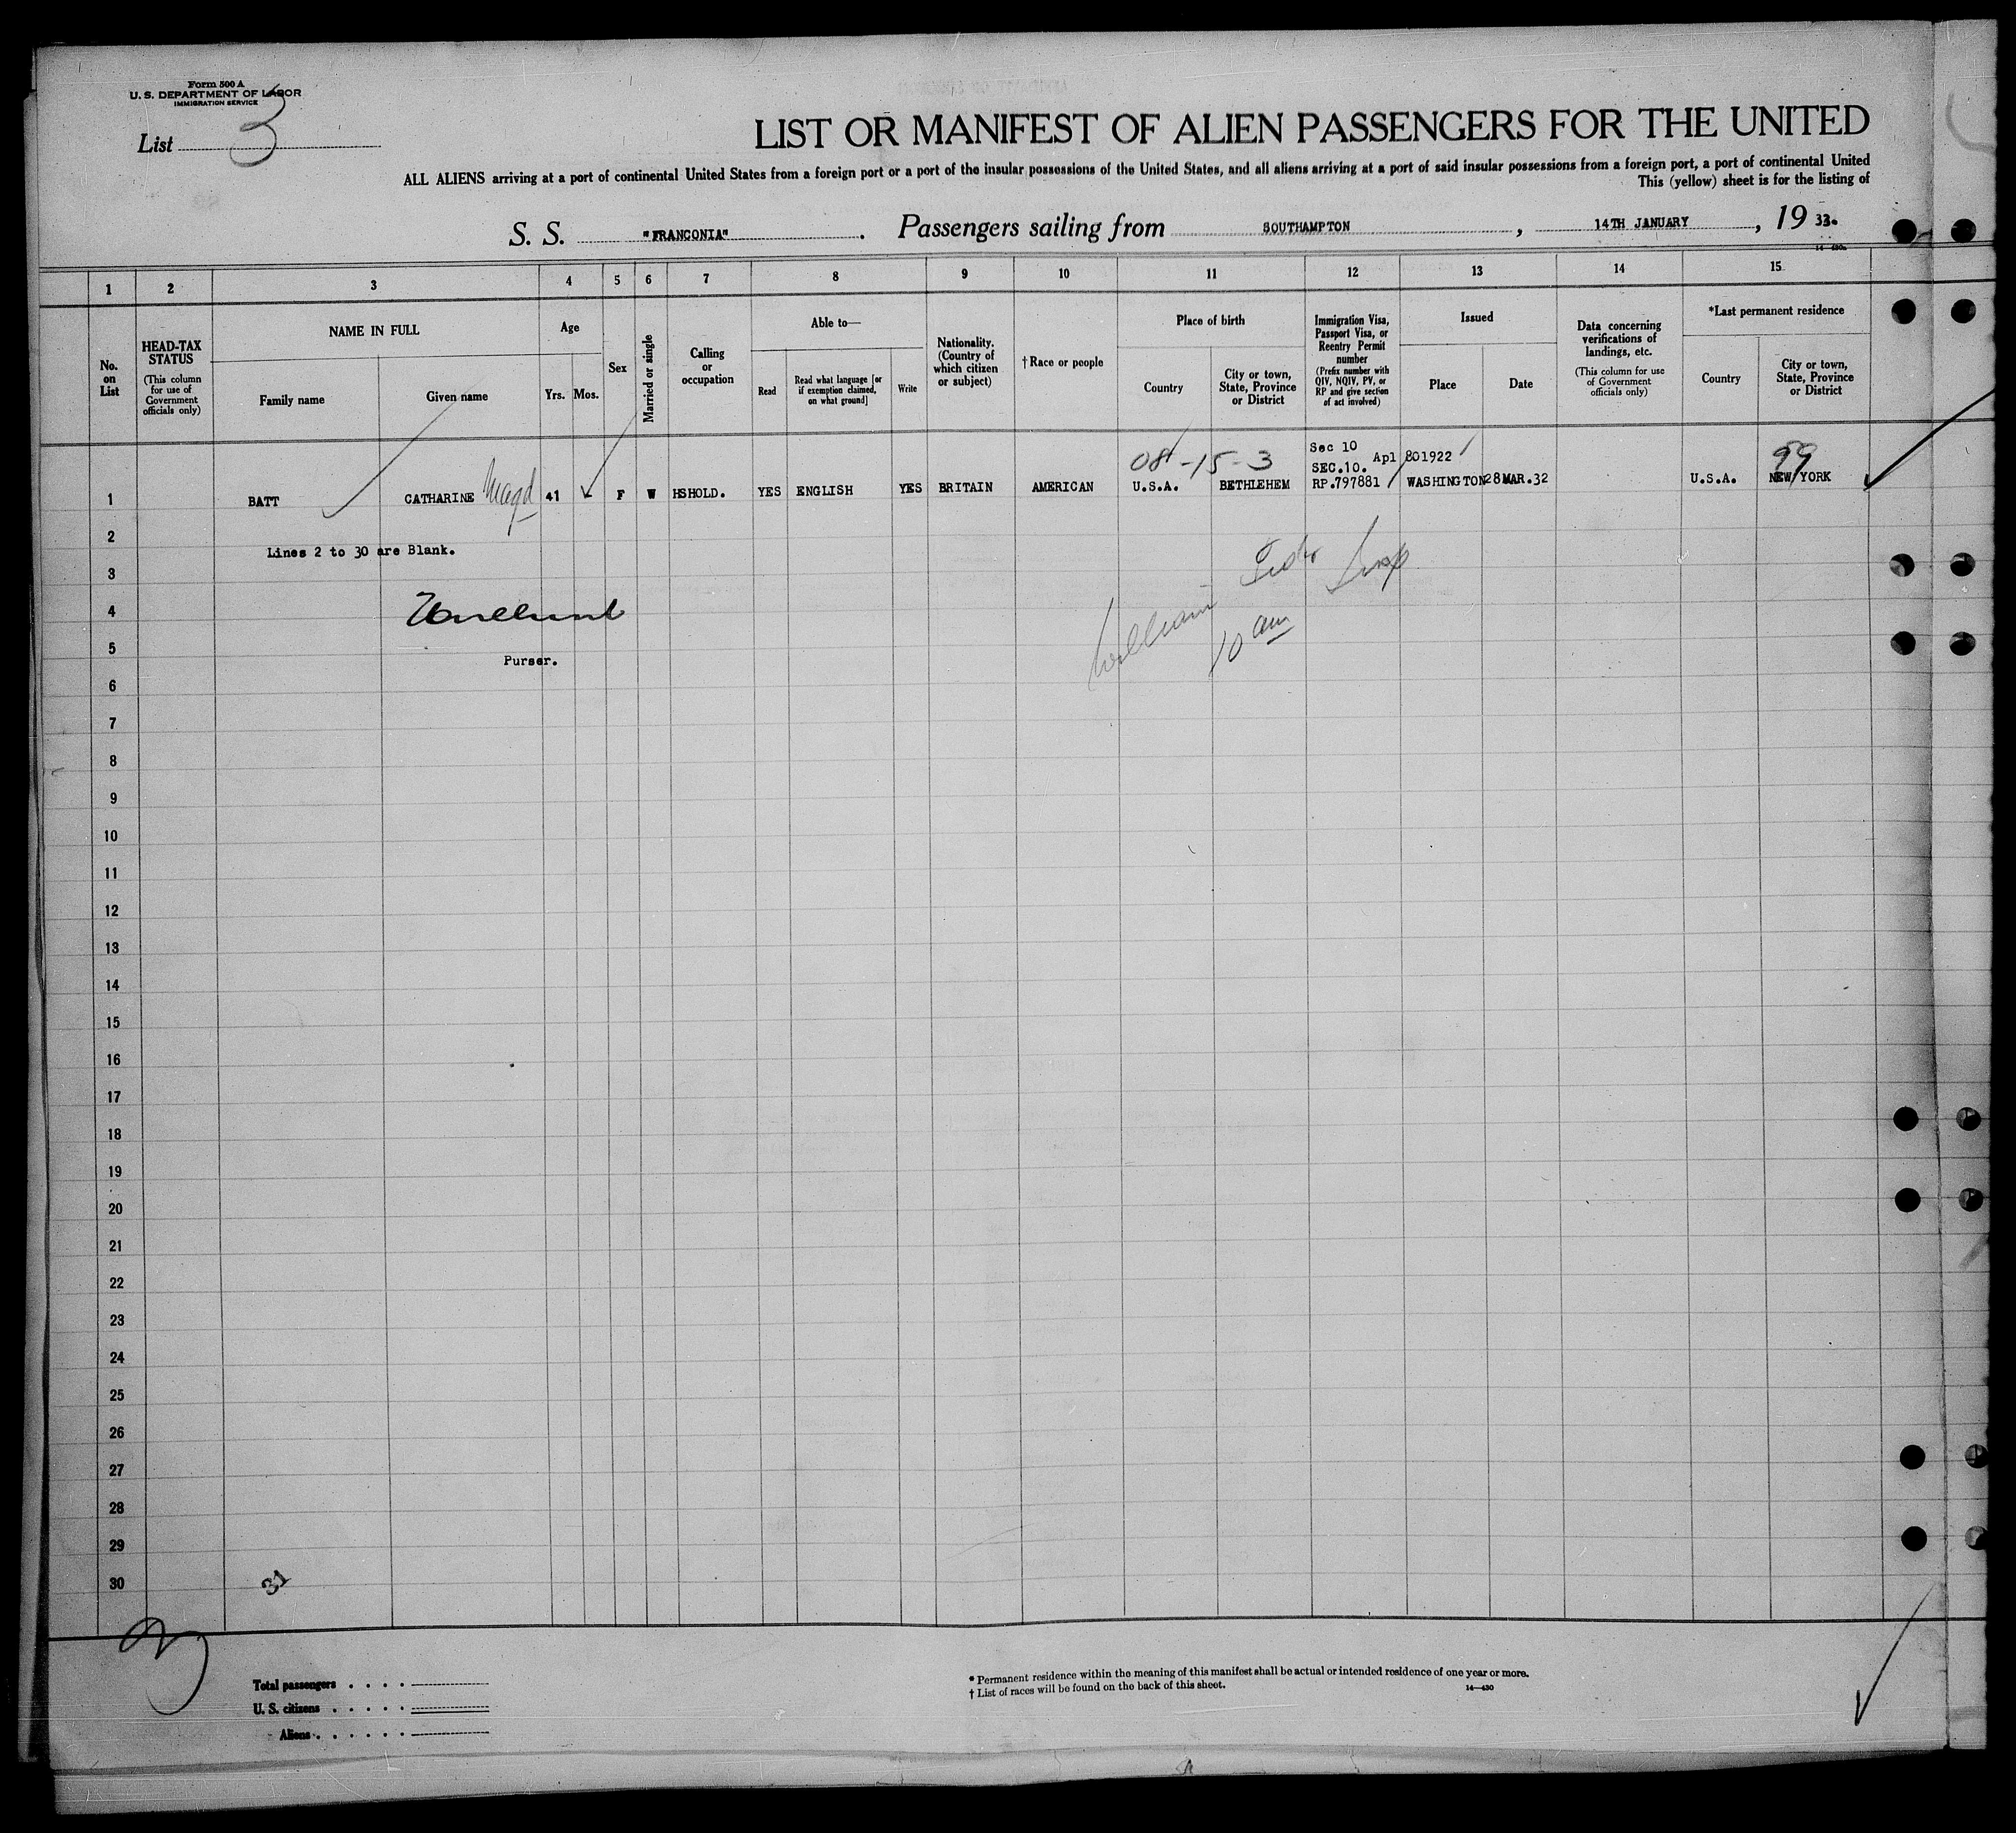 Form 500 A
U. S. DEPARTMENT OF LABOR
IMMIGRATION SERVICE
List 3
LIST OR MANIFEST OF ALIEN PASSENGERS FOR THE UNITED
ALL ALIENS arriving at a port of continental United States from a foreign port or a port of the insular possessions of the United States, and all aliens arriving at a port of said insular possessions from a foreign port, a port of continental United
This (yellow) sheet is for the listing of
S. S. "FRANCONIA". Passengers sailing from SOUTHAMPTON, 14TH JANUARY, 19 33.
1 2 3 4 5 6 7 8 9 10 11 12 13 14 15
No. on List
HEAD-TAX STATUS
(This column for use of Government officials only)
NAME IN FULL
Family name
Given name
Age
Yrs. Mos.
Sex
Married or single
Calling or occupation
Able to—
Read
Read what language [or if exemption claimed, on what ground]
Write
Nationality. (Country of which citizen or subject)
† Race or people
Place of birth
Country
City or town, State, Province or District
Immigration Visa, Passport Visa, or Reentry Permit number
(Prefix number with QIV, NQIV, PV, or RP and give section of act involved)
Issued
Place
Date
Data concerning verifications of landings, etc.
(This column for use of Government officials only)
*Last permanent residence
Country
City or town, State, Province or District
08-15-3
Sec 10
Apl 801922
SEC.10.
99
1 BATT CATHARINE Magd 41 F W HSHOLD. YES ENGLISH YES BRITAIN AMERICAN U.S.A. BETHLEHEM RP.797881 WASHINGTON 28MAR.32 U.S.A. NEW YORK
2
Lines 2 to 30 are Blank.
3
4
William
10 am
5
Purser.
6
7
8
9
10
11
12
13
14
15
16
17
18
19
20
21
22
23
24
25
26
27
28
29
30
31
3
Total passengers
U. S. citizens
Aliens
* Permanent residence within the meaning of this manifest shall be actual or intended residence of one year or more.
† List of races will be found on the back of this sheet.
14—430